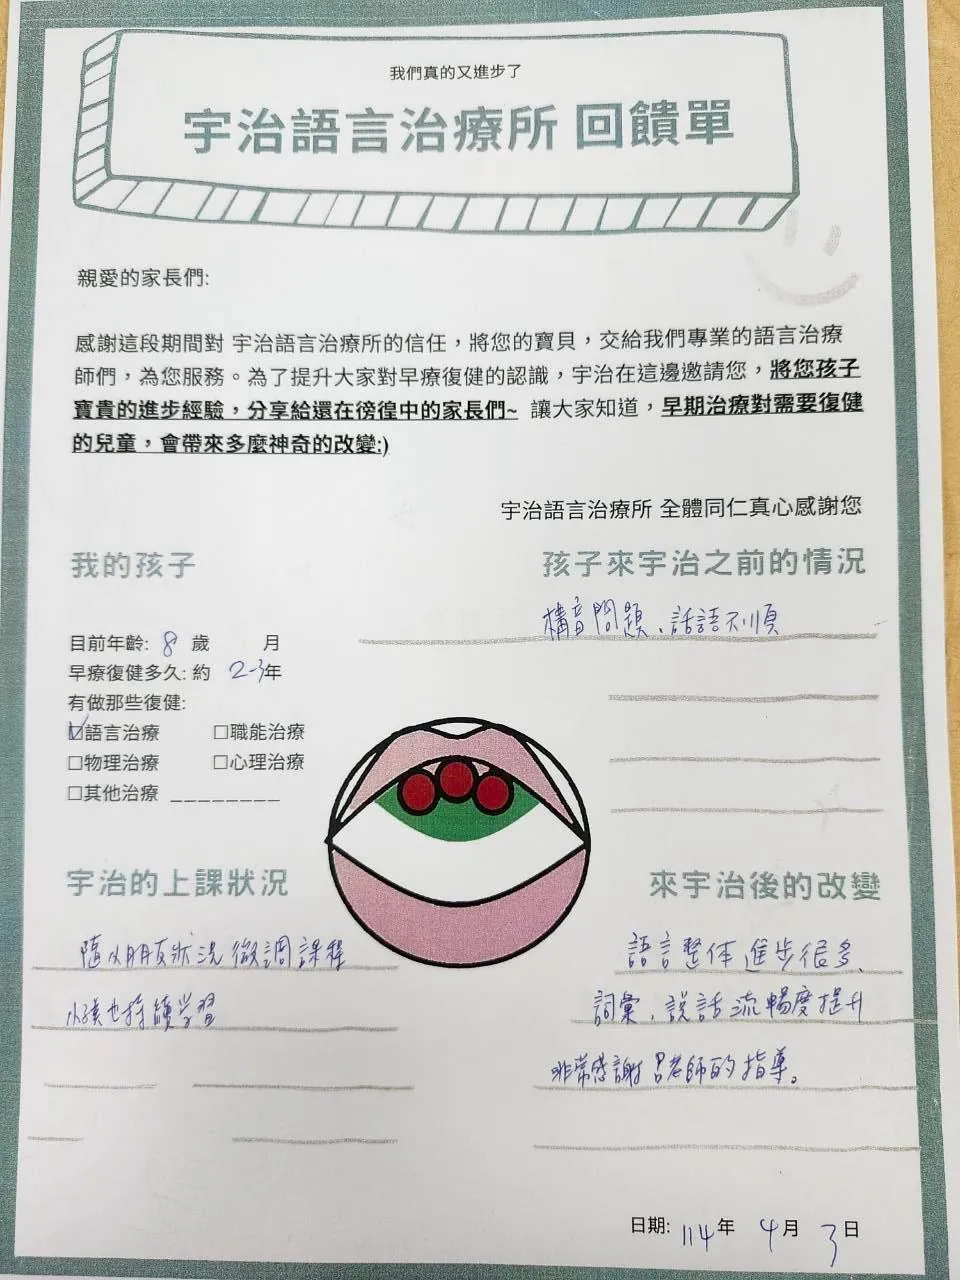 我們真的又進步了
宇治語言治療所 回饋單
親愛的家長們:
感謝這段期間對 宇治語言治療所的信任，將您的寶貝，交給我們專業的語言治療
師們，為您服務。為了提升大家對早療復健的認識，宇治在這邊邀請您，將您孩子
寶貴的進步經驗，分享給還在徬徨中的家長們~ 讓大家知道，早期治療對需要復健
的兒童，會帶來多麼神奇的改變:)
宇治語言治療所 全體同仁真心感謝您
我的孩子
目前年齡: 8 歲 月
早療復健多久: 約 2-3年
有做那些復健:
☑語言治療 □職能治療
□物理治療 □心理治療
□其他治療 _________
孩子來宇治之前的情況
構音問題、話語不順
宇治的上課狀況
隨小朋友狀況微調課程
小孩也持續学習
來宇治後的改變
語言整体進步很多、
詞彙、說話流暢度提升
非常感謝呂老師的指導。
日期: 114年 4月 3日